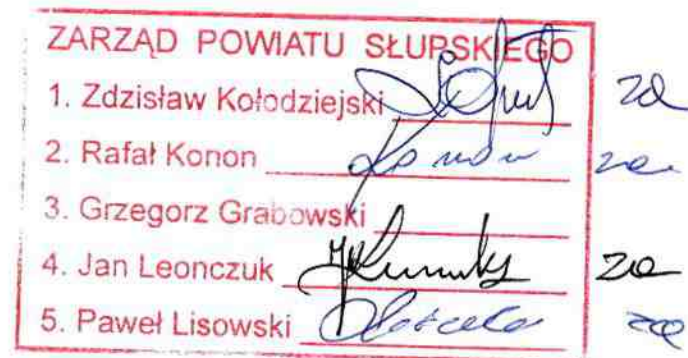 ZARZĄD POWIATU SŁUPSKIEGO
1. Zdzisław Kołodziejski za
2. Rafał Konon za
3. Grzegorz Grabowski
4. Jan Leonczuk za
5. Paweł Lisowski za